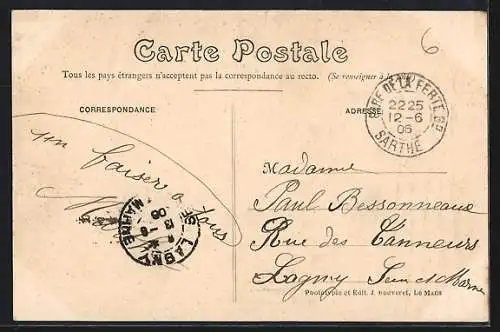 6
Carte Postale
Tous les pays étrangers n'acceptent pas la correspondance au recto. (Se renseigner à la
CORRESPONDANCE
ADRESSE
GARE DE LA FERTE BD
2225
12-6
06
SARTHE
un baiser a tous
LAGNY
S. MARNE
13-6
06
Madame
Paul Bessonneaux
Rue des Tanneurs
Lagny Seine et Marne
Phototypie et Édit. J. Bouveret, Le Mans